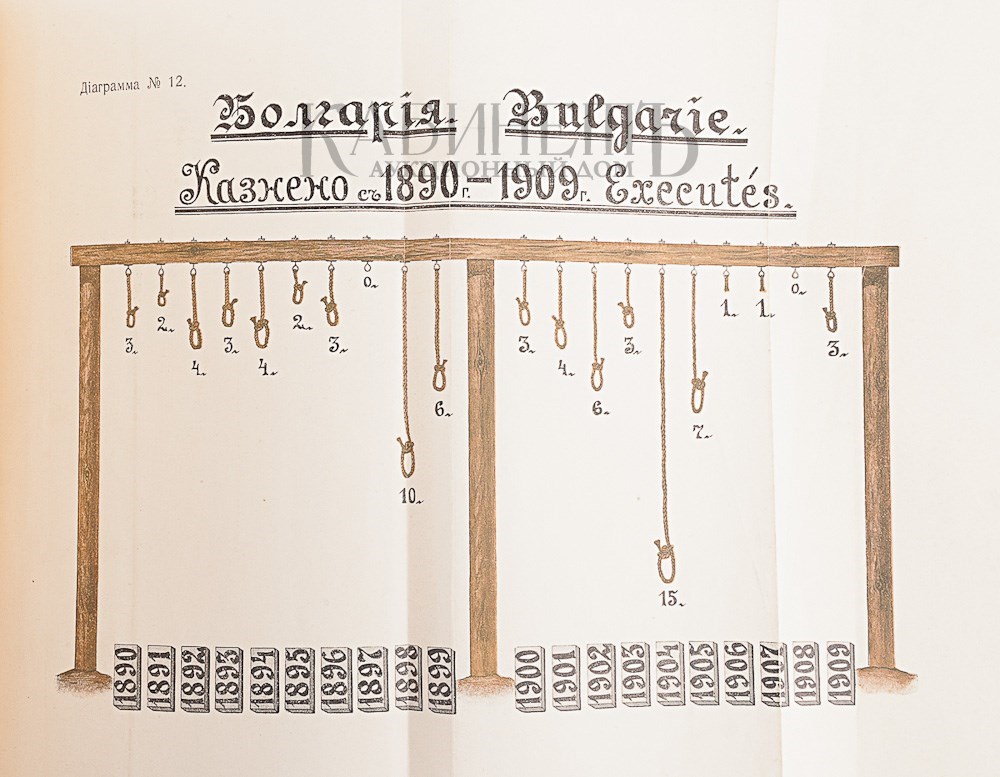 Діаграмма № 12.
Болгарія. Bulgarie.
КАБИНЕТЪ
АУКЦИОННЫЙ ДОМ
Казнено съ 1890 г. – 1909 г. Executés.
3. 2. 4. 3. 4. 2. 3. 0. 10. 6. 3. 4. 6. 3. 15. 7. 1. 1. 0. 3.
1890 1891 1892 1893 1894 1895 1896 1897 1898 1899 1900 1901 1902 1903 1904 1905 1906 1907 1908 1909